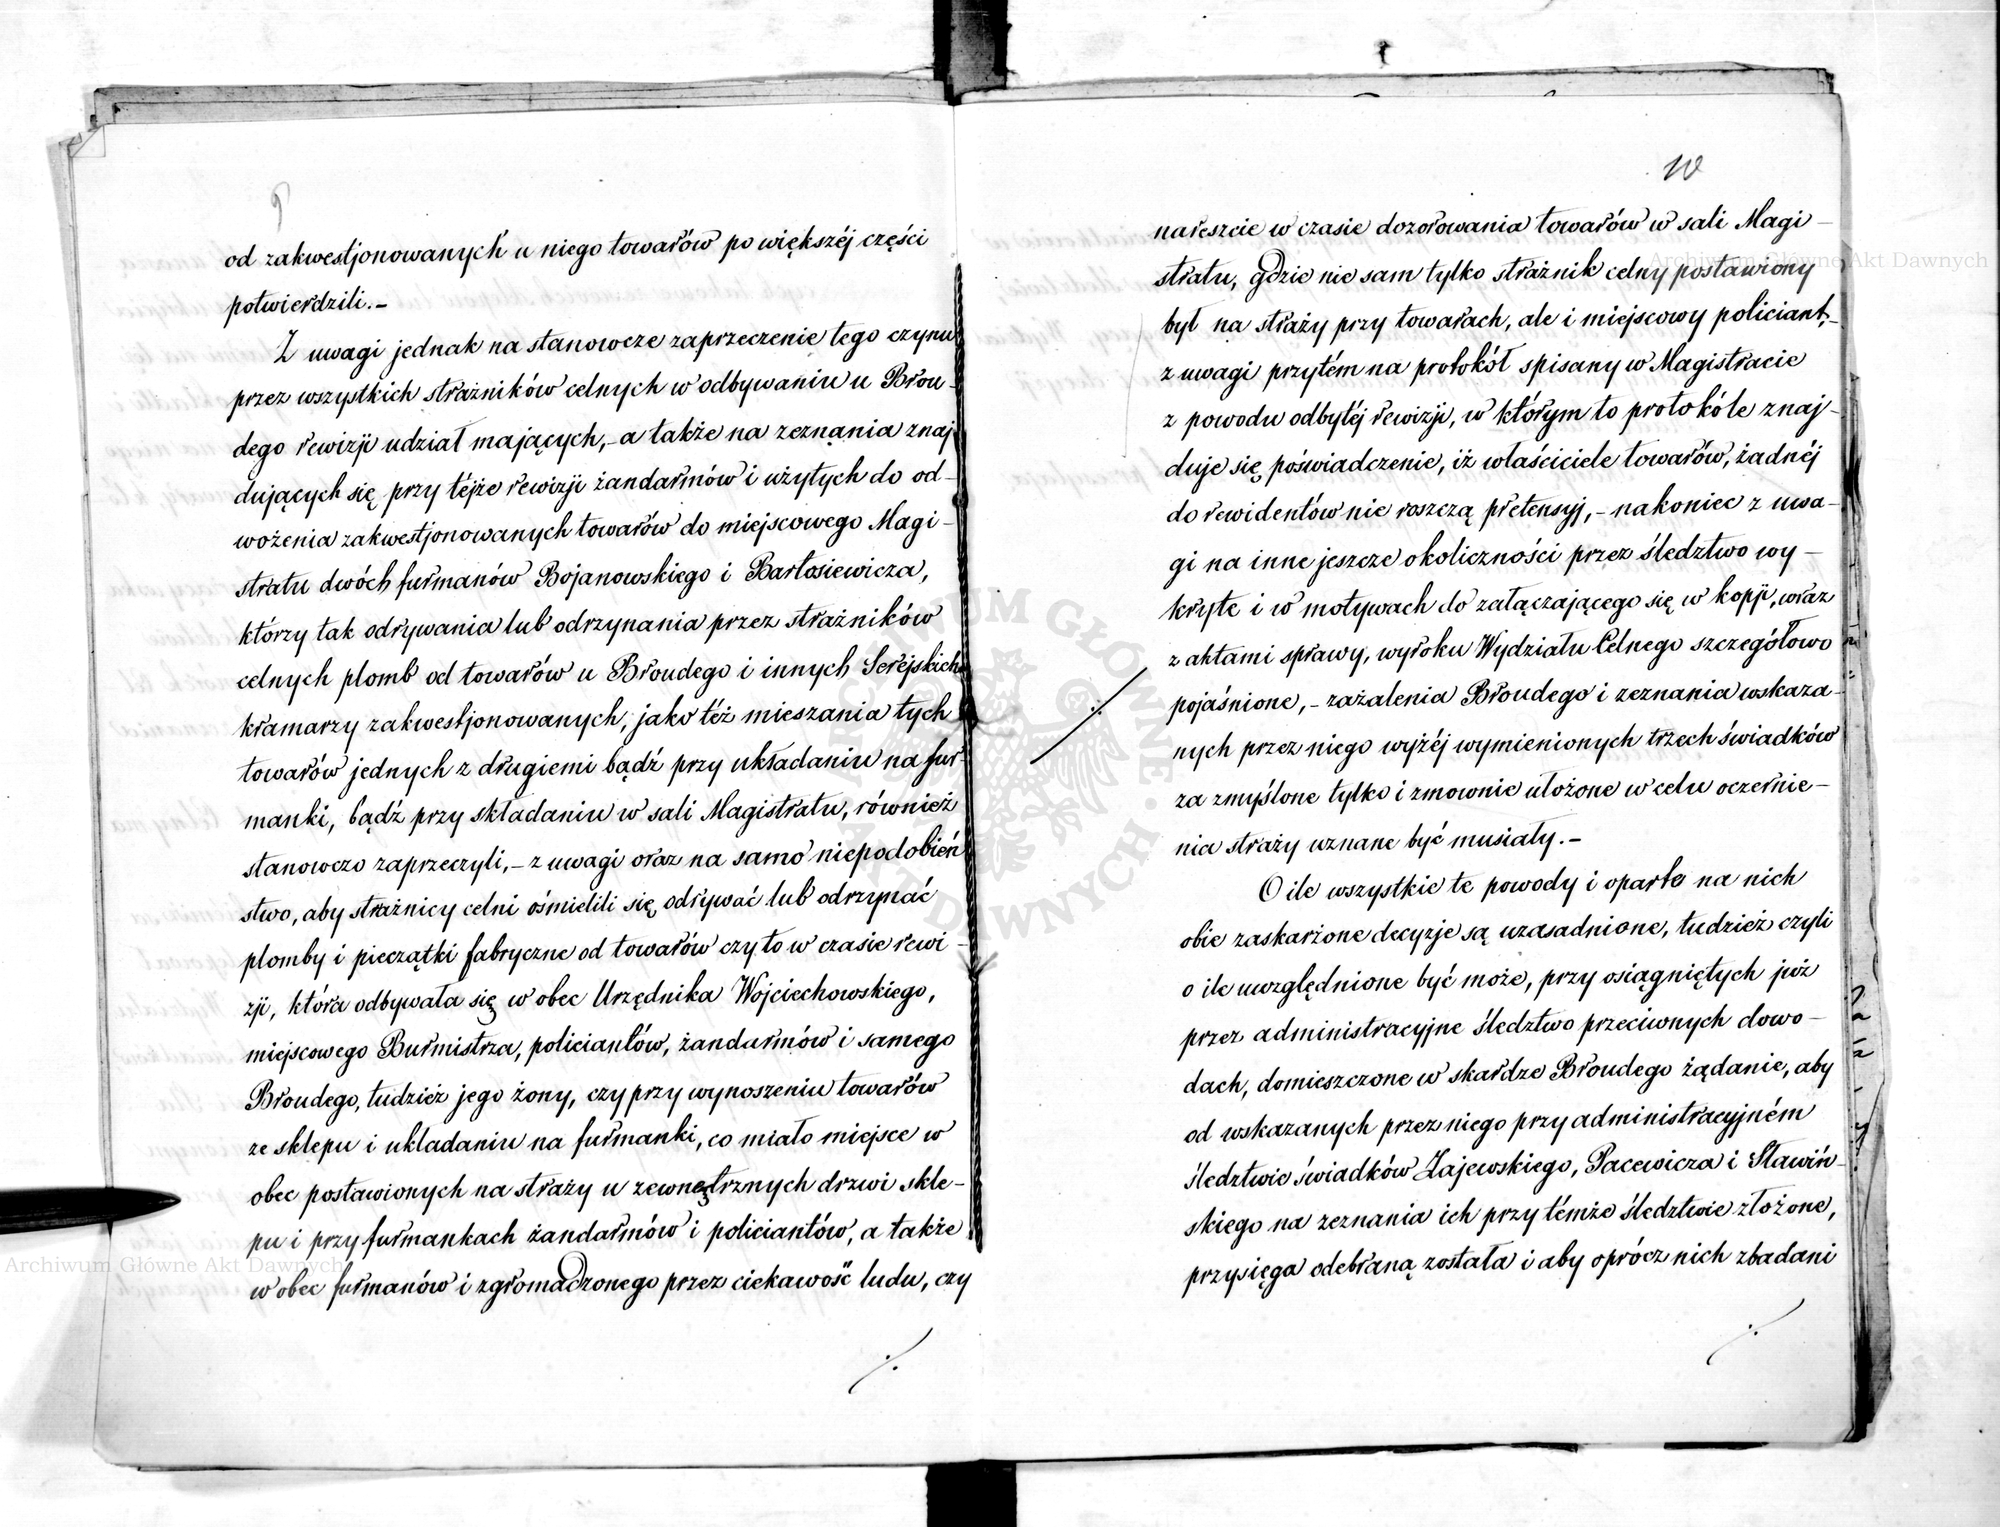 9
od zakwestjonowanych u niego towarów po większéj części
potwierdzili.–
Z uwagi jednak na stanowcze zaprzeczenie tego czynu
przez wszystkich strażników celnych w odbywaniu u Brou-
dego rewizji udział mających,– a także na zeznania znaj
dujących się przy téjże rewizji żandarmów i użytych do od-
wożenia zakwestjonowanych towarów do miejscowego Magi-
stratu dwóch furmanów Bojanowskiego i Bartosiewicza,
którzy tak odrywania lub odrzynania przez strażników
celnych plomb od towarów u Broudego i innych Serejskich
kramarzy zakwestjonowanych, jako téż mieszania tych
towarów jednych z drugiemi bądź przy układaniu na fur-
manki, bądź przy składaniu w sali Magistratu, również
stanowczo zaprzeczyli,– z uwagi oraz na samo niepodobień
stwo, aby strażnicy celni ośmielili się odrywać lub odrzynać
plomby i pieczątki fabryczne od towarów czy to w czasie rewi-
zji, która odbywała się w obec Urzędnika Wojciechowskiego,
miejscowego Burmistrza, policiantów, żandarmów i samego
Broudego, tudzież jego żony, czy przy wynoszeniu towarów
ze sklepu i układaniu na furmanki, co miało miejsce w
obec postawionych na straży u zewnętrznych drzwi skle-
pu i przy furmankach żandarmów i policiantów, a także
w obec furmanów i zgromadzonego przez ciekawość ludu, czy
./.
10
nareszcie w czasie dozorowania towarów w sali Magi-
stratu, gdzie nie sam tylko strażnik celny postawiony
był na straży przy towarach, ale i miejscowy policiant,–
z uwagi przytém na protokół spisany w Magistracie
z powodu odbytéj rewizji, w którym to protokóle znaj-
duje się poświadczenie, iż właściciele towarów, żadnéj
do rewidentów nie roszczą pretensyj,– nakoniec z uwa-
gi na inne jeszcze okoliczności przez śledztwo wy-
kryte i w motywach do załączającego się w kopji, wraz
z aktami sprawy, wyroku Wydziału Celnego szczegółowo
pojaśnione,– zażalenia Broudego i zeznania wskaza-
nych przez niego wyżéj wymienionych trzech świadków
za zmyślone tylko i zmownie ułożone w celu oczernie-
nia straży uznane być musiały.–
O ile wszystkie te powody i oparte na nich
obie zaskarżone decyzje są uzasadnione, tudzież czyli
o ile uwzględnione być może, przy osiągniętych już
przez administracyjne śledztwo przeciwnych dowo-
dach, domieszczone w skardze Broudego żądanie, aby
od wskazanych przez niego przy administracyjném
śledztwie świadków Zajewskiego, Pacewicza i Sławiń-
skiego na zeznania ich przy témże śledztwie złożone,
przysięga odebraną została i aby oprócz nich zbadani
./.
Archiwum Główne Akt Dawnych
Archiwum Główne Akt Dawnych
ARCHIWUM GŁÓWNE AKT DAWNYCH